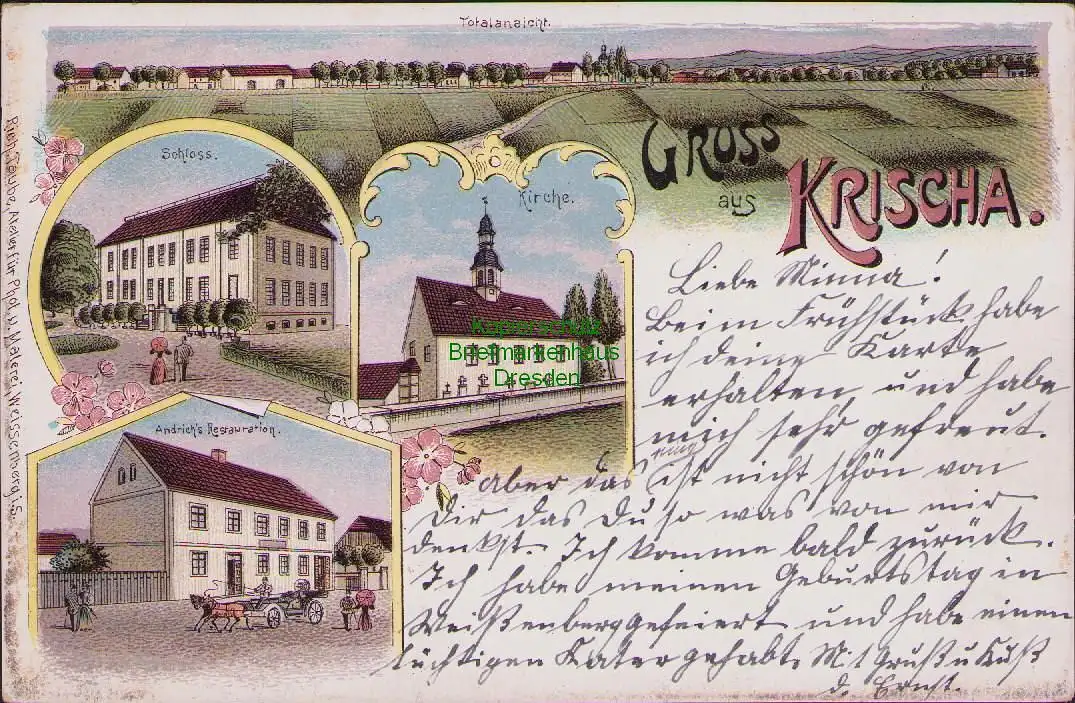 Totalansicht.
GRUSS
aus
KRISCHA.
Schloss.
Kirche.
Andrich's Restauration.
Atelier für Phot. u. Malerei, Weissenberg i. S.
Kaponschutz
Briefmarkenhaus
Dresden
Liebe Minna!
Beim Frühstück habe
ich deine Karte
erhalten, und habe
mich sehr gefreut.
Aber das ist nicht schön von
Dir das Du so was von mir
denkst. Ich komme bald zurück.
Ich habe meinen Geburtstag in
Weißenberg gefeiert und habe einen
tüchtigen Kater gehabt. Mit Gruß u Kuß
d. Ernst.